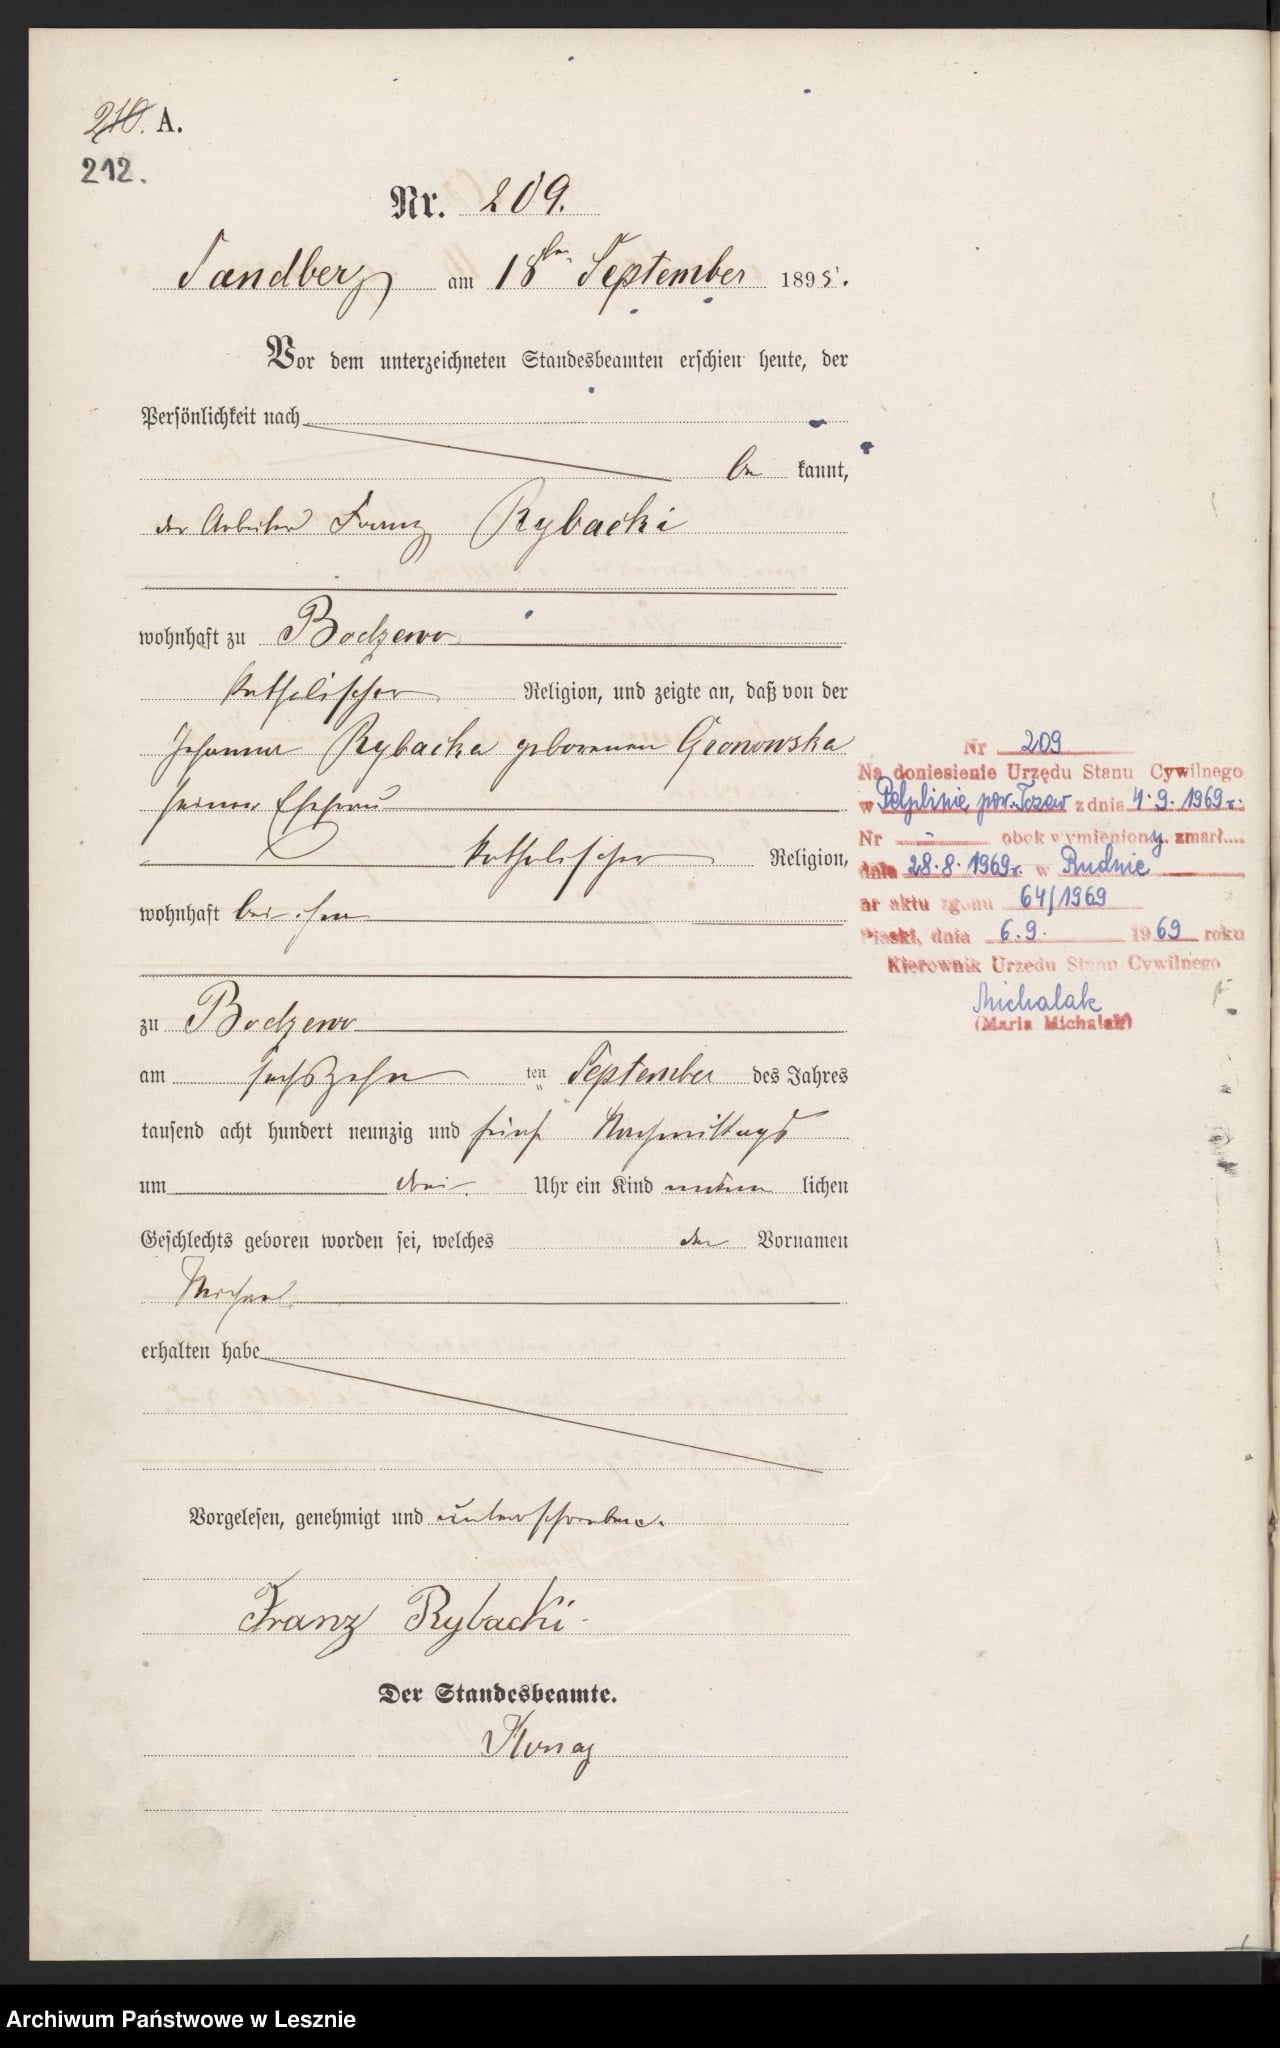 210. A.
212.
Nr. 209.
Sandberg am 18ten September 1895.
Vor dem unterzeichneten Standesbeamten erschien heute, der
Persönlichkeit nach
be kannt,
der Arbeiter Franz Rybacki
wohnhaft zu Bodzewo
katholischer Religion, und zeigte an, daß von der
Johanna Rybacka geborenen Gronowska
seiner Ehefrau
katholischer Religion,
wohnhaft bei ihm
zu Bodzewo
am sechszehn ten September des Jahres
tausend acht hundert neunzig und fünf Nachmittags
um drei Uhr ein Kind männ lichen
Geschlechts geboren worden sei, welches den Vornamen
Michael
erhalten habe
Vorgelesen, genehmigt und unterschrieben.
Franz Rybacki
Der Standesbeamte.
Nr 209
Na doniesienie Urzędu Stanu Cywilnego
w Pelplinie pow. Tczew z dnia 4.9.1969 r.
Nr - obok wymieniony zmarł....
dnia 28.8.1969r. w Rudnie
nr aktu zgonu 64/1969
Piaski, dnia 6.9. 1969 roku
Kierownik Urzędu Stanu Cywilnego
Michalak
(Maria Michalak)
Archiwum Państwowe w Lesznie